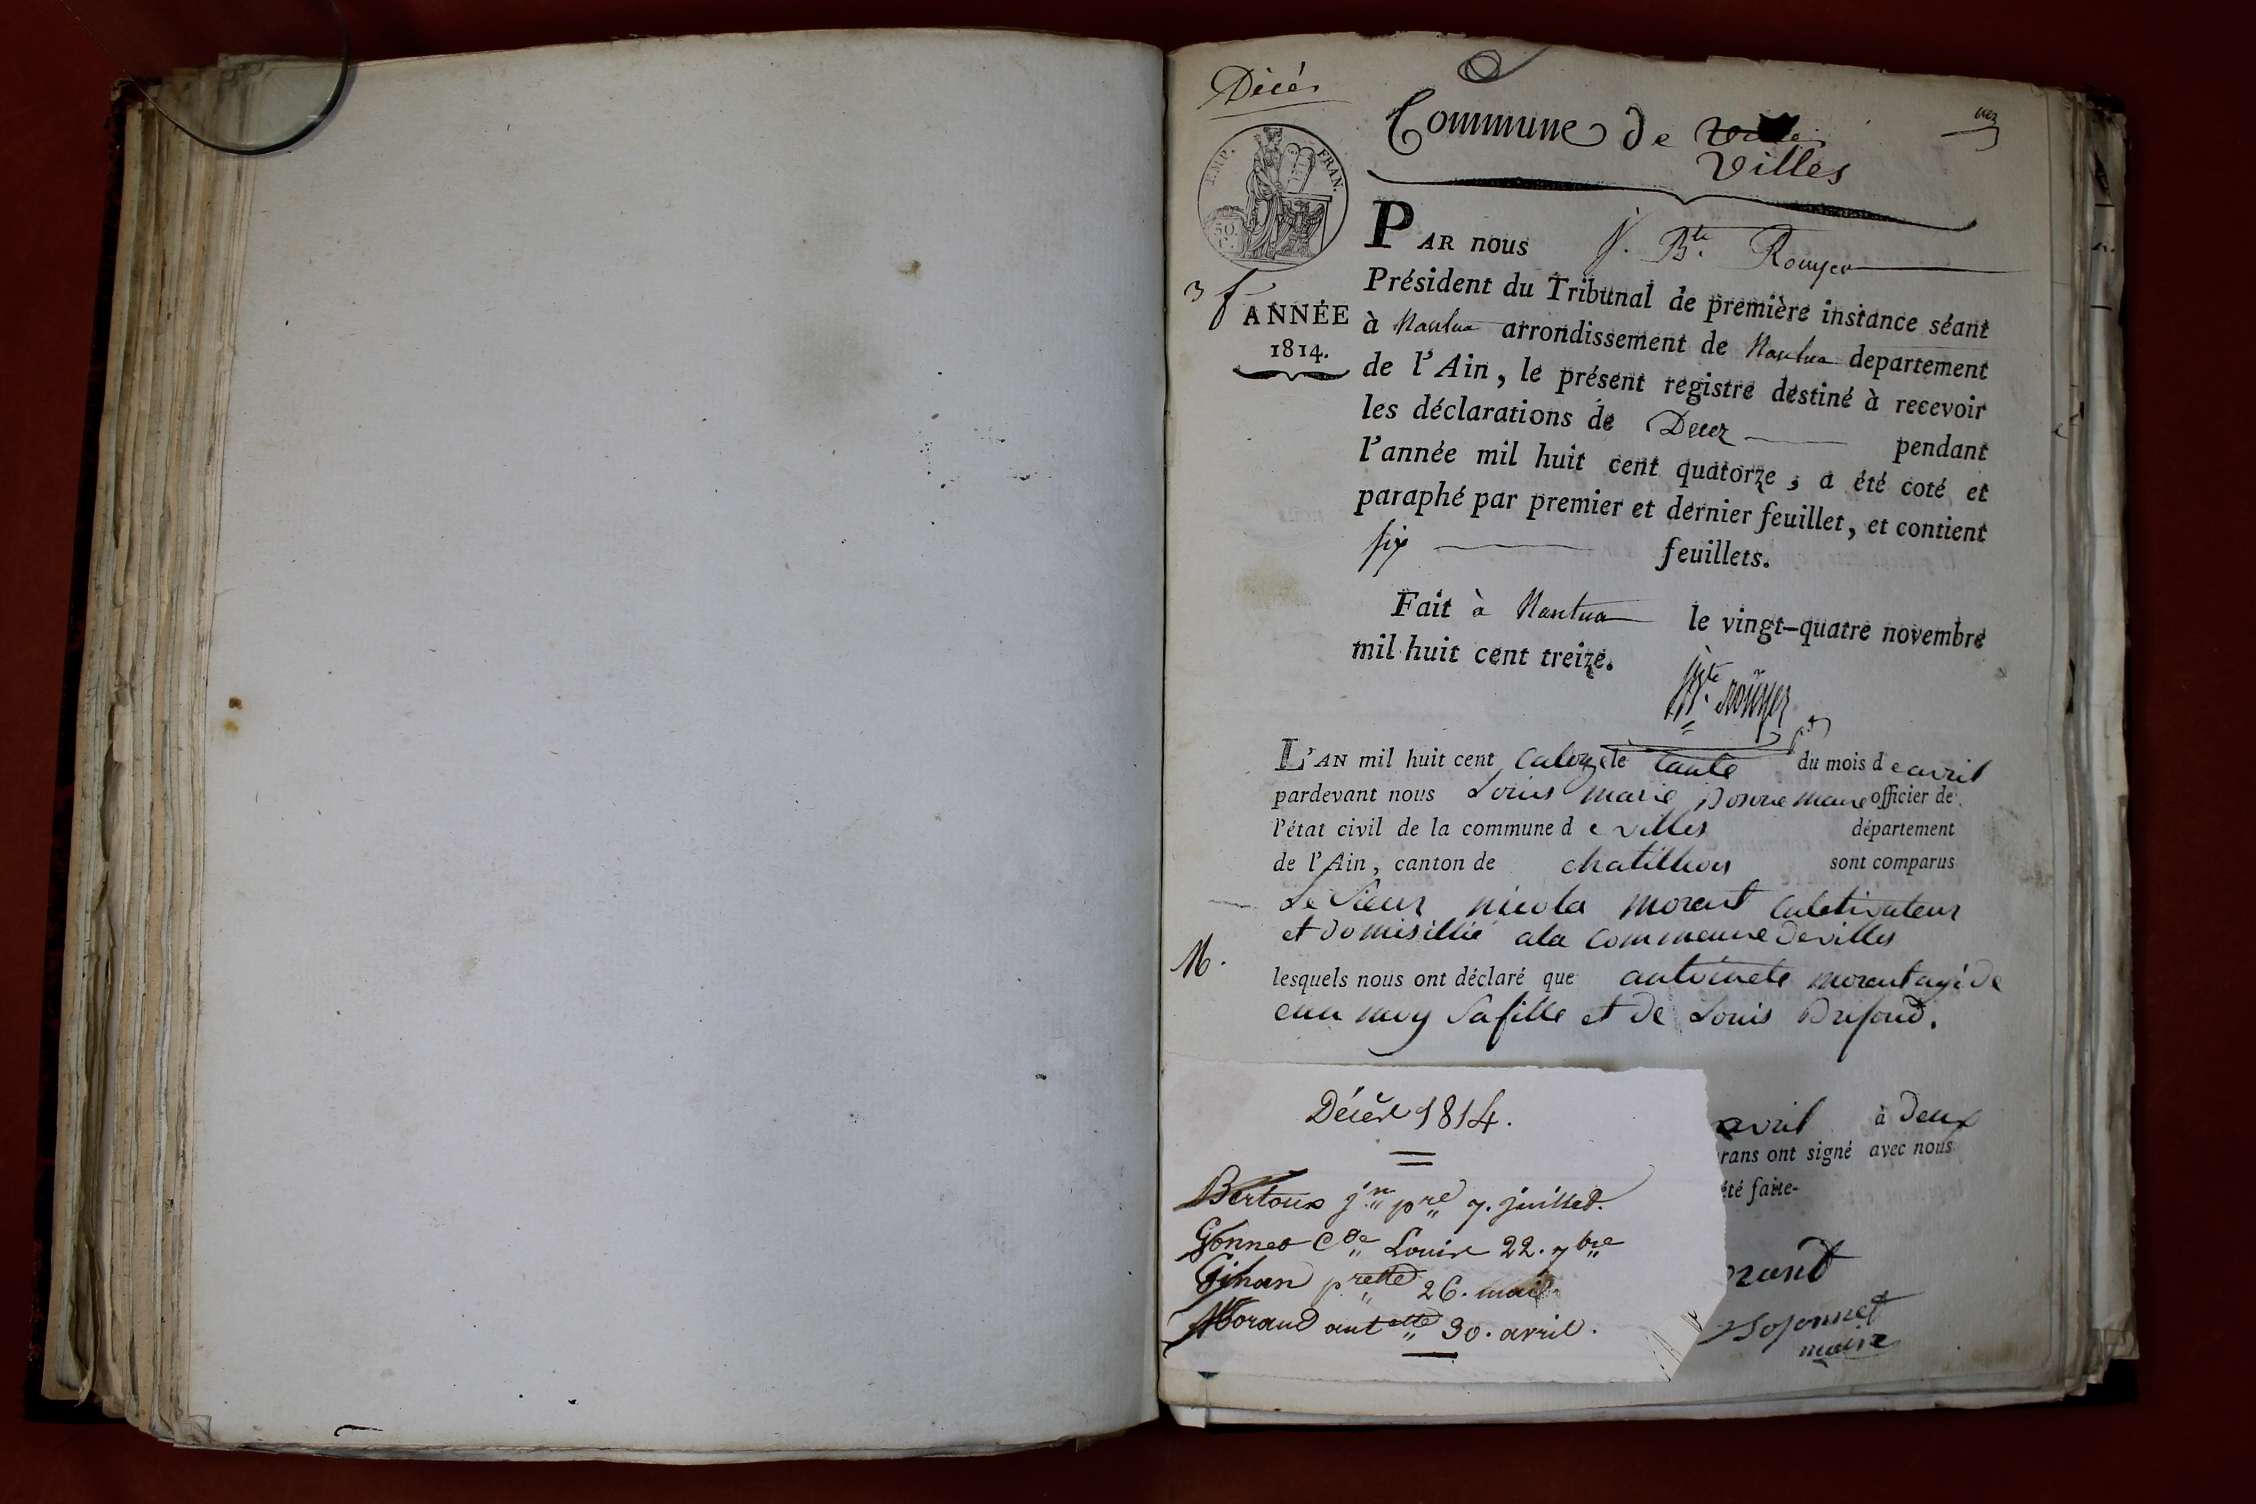 Décés
Commune de
Villes
EMP. FRAN.
50.
C.
ANNÉE
1814.
PAR nous J. Bte. Rouyer
Président du Tribunal de première instance séant
à Nantua arrondissement de Nantua departement
de l'Ain, le présent registre destiné à recevoir
les déclarations de Decez pendant
l'année mil huit cent quatorze, a été coté et
paraphé par premier et dernier feuillet, et contient
six feuillets.
Fait à Nantua le vingt-quatre novembre
mil huit cent treize.
Bte. rouyer
L'AN mil huit cent le tante du mois de avril
pardevant nous Louis marie officier de
l'état civil de la commune de villes département
de l'Ain, canton de chatillion sont comparus
Le Sieur nicola morant cultivateur
et domisillié a la commeune de villes
M.
lesquels nous ont déclaré que antoinete morant agé de
moy sa fille et de Louis
avril à deux
rans ont signé avec nous
été faite.
orant
maire
Décès 1814.
Bertoux jn pre 7. juillet.
Gonnet Cde Louise 22. 7bre
prette 26. mai
Morand antette 30. avril.